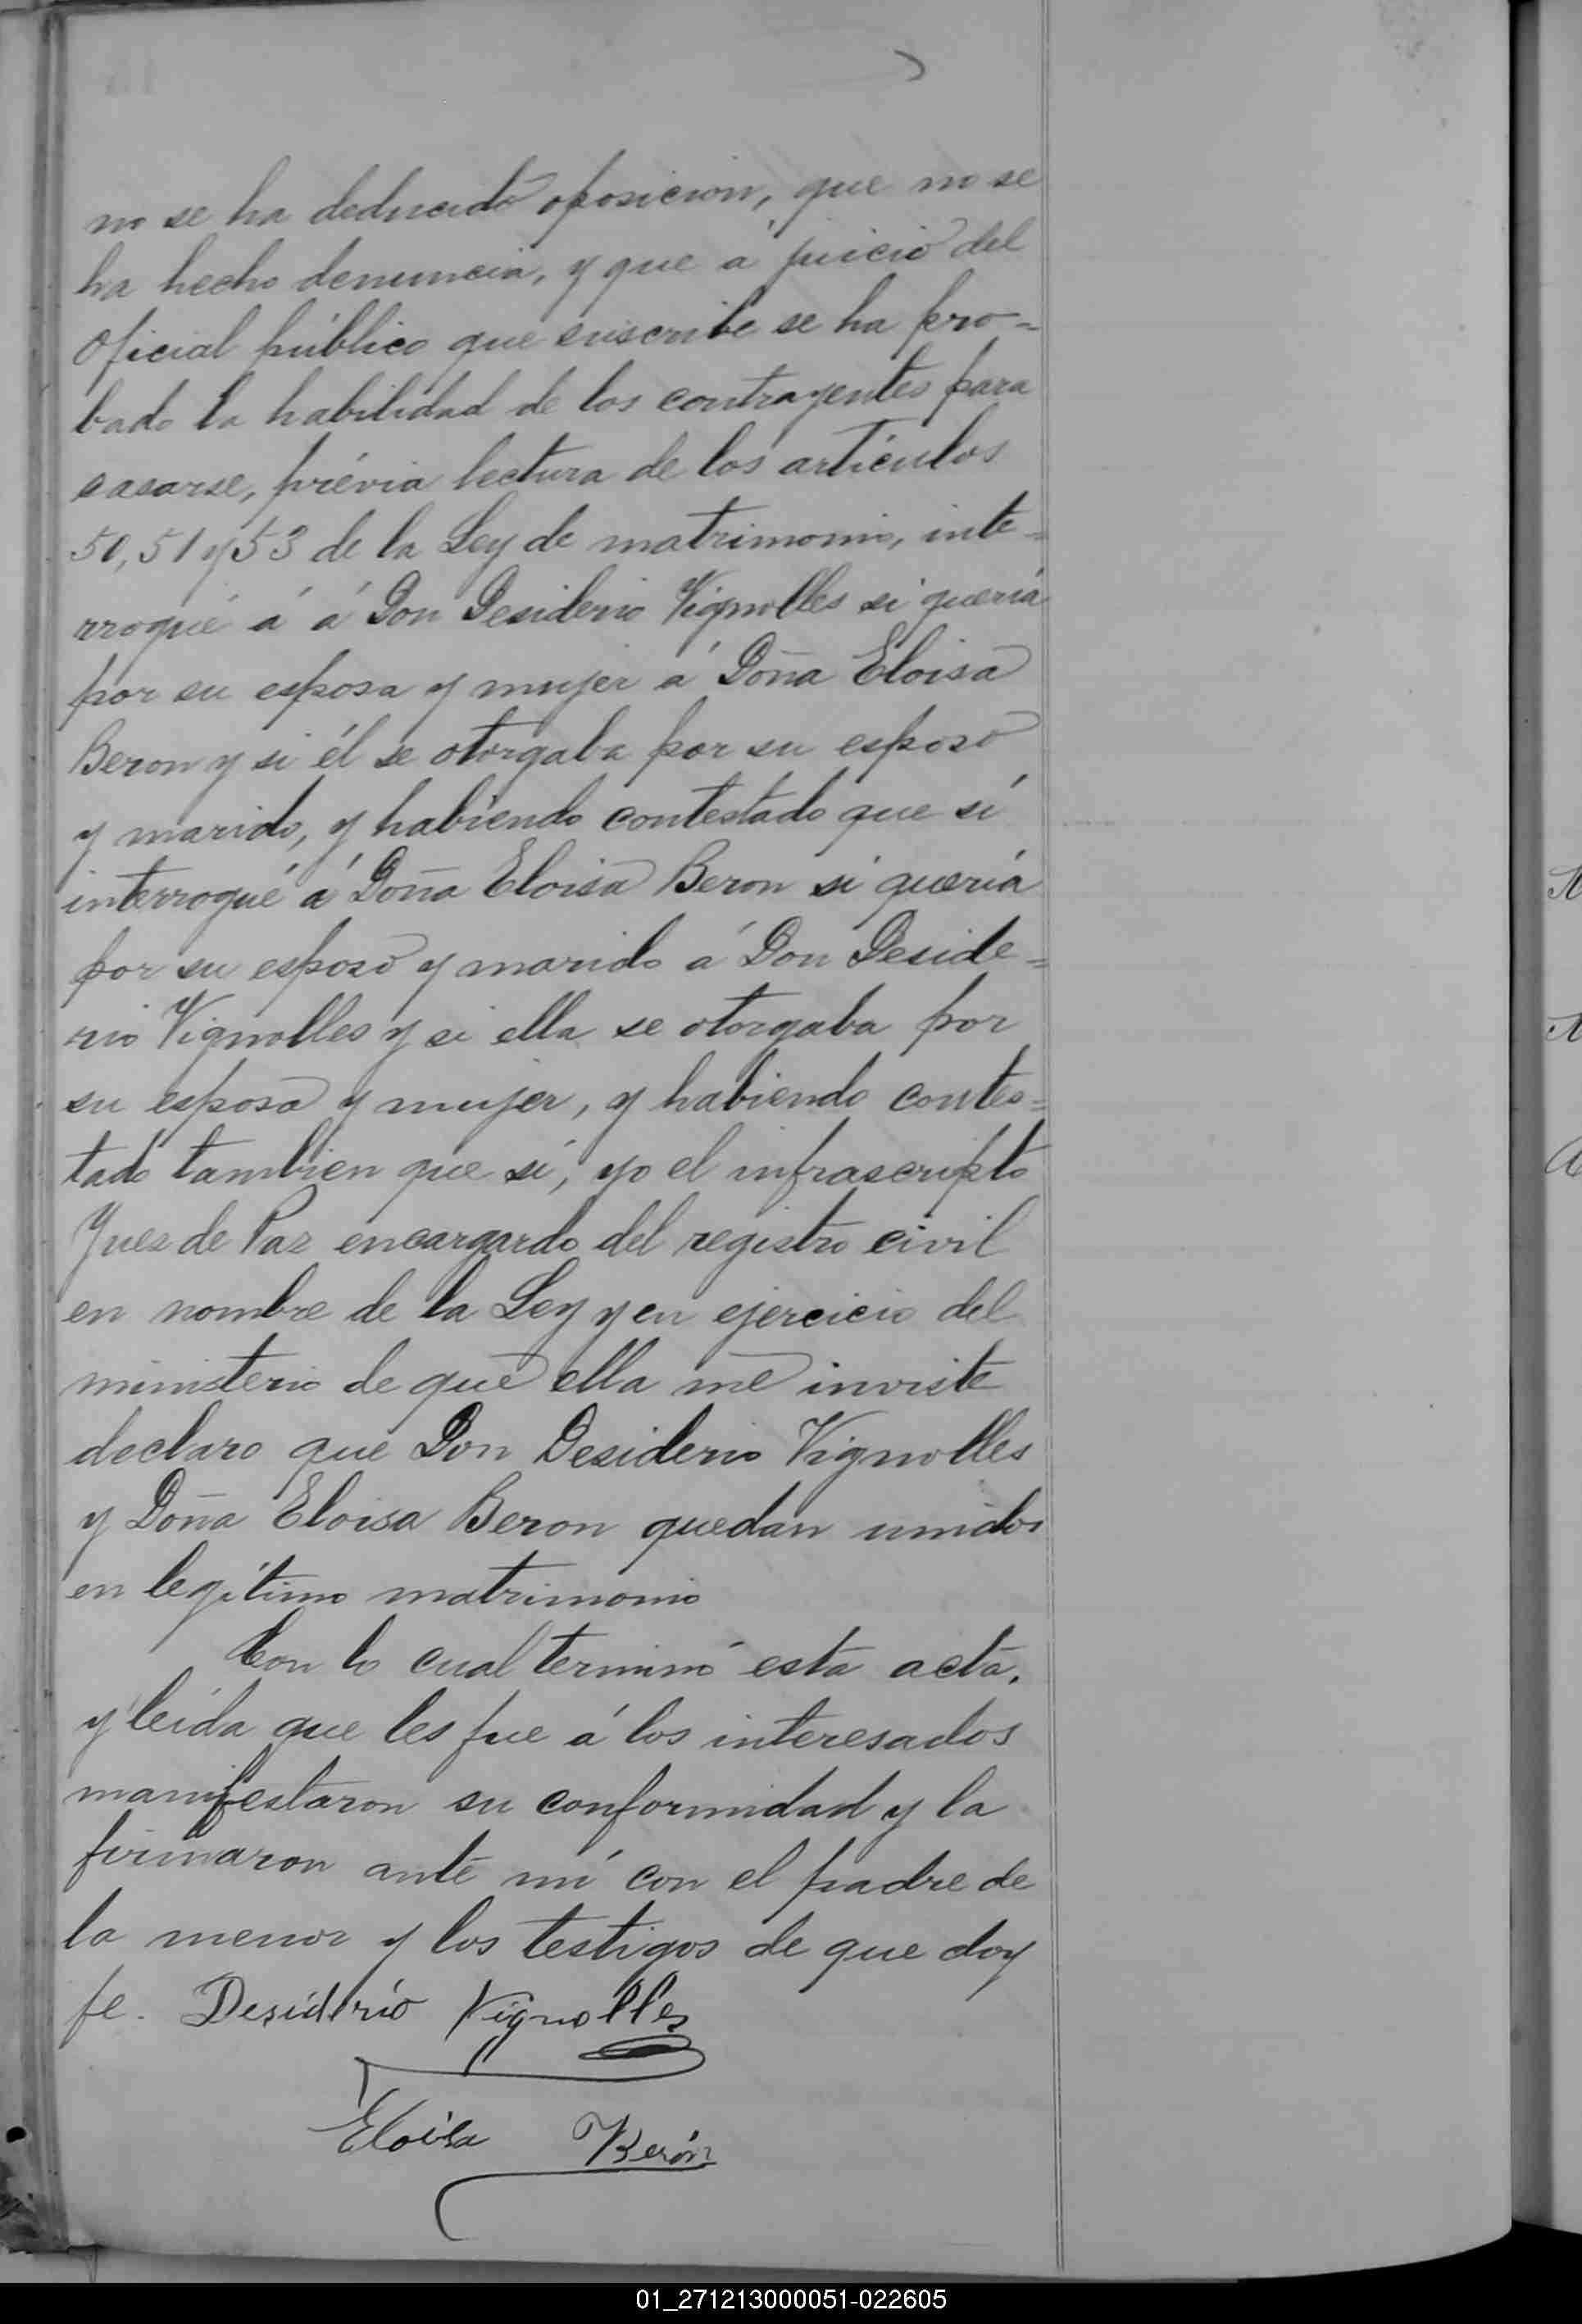 no se ha deducido oposicion, que no se
ha hecho denuncia, y que á juicio del
Oficial público que suscribe se ha pro=
bado la habilidad de los contrayentes para
casarse, prévia lectura de los artículos
50, 51 y 53 de la Ley de matrimonio, inte=
rrogué á á Don Desiderio Vignolles si quería
por su esposa y mujer á Doña Eloisa
Beron y si él se otorgaba por su esposo
y marido, y habiendo contestado que sí
interrogué á Doña Eloisa Beron si quería
por su esposo y marido á Don Deside=
rio Vignolles y si ella se otorgaba por
su esposa y mujer, y habiendo contes=
tado tambien que sí, yo el infrascripto
Juez de Paz encargardo del registro civil
en nombre de la Ley y en ejercicio del
ministerio de que ella me inviste
declaro que Don Desiderio Vignolles
y Doña Eloisa Beron quedan unidos
en legítimo matrimonio
Con lo cual terminó esta acta,
y leída que les fue á los interesados
manifestaron su conformidad y la
firmaron ante mí con el padre de
la menor y los testigos de que doy
fe. Desiderio Vignolles
Eloisa Berón
01_271213000051-022605